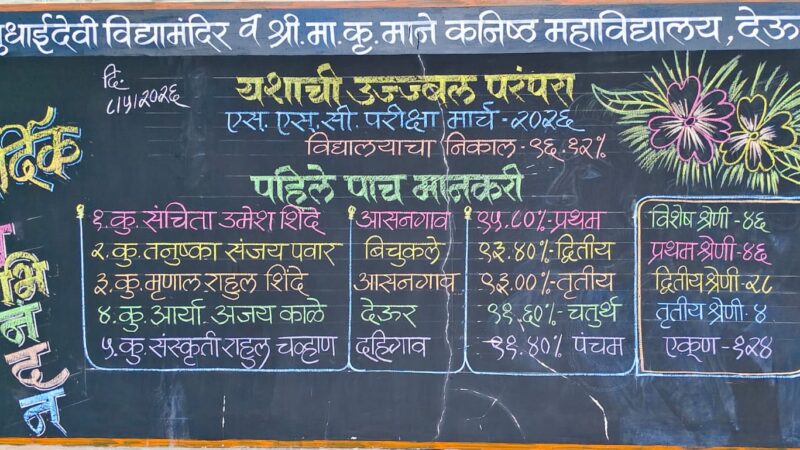 मुधाईदेवी विद्यामंदिर व श्री.मा.कृ.माने कनिष्ठ महाविद्यालय, देऊ
दि. ८/५/२०२६
यशाची उज्ज्वल परंपरा
एस.एस.सी. परीक्षा मार्च-२०२६
विद्यालयाचा निकाल-९६.१२%
पहिले पाच मानकरी
१. कु. संचिता उमेश शिंदे आसनगाव ९५.८०%-प्रथम
२. कु. तनुष्का संजय पवार बिचुकले ९३.४०%-द्वितीय
३. कु. मृणाल राहुल शिंदे आसनगाव ९३.००%-तृतीय
४. कु. आर्या अजय काळे देऊर ९१.६०%-चतुर्थ
५. कु. संस्कृती राहुल चव्हाण दहिगाव ९१.४०% पंचम
विशेष श्रेणी-४६
प्रथम श्रेणी-४६
द्वितीय श्रेणी-२८
तृतीय श्रेणी-४
एकूण-१२४
र्दिक
भि
न
द
न